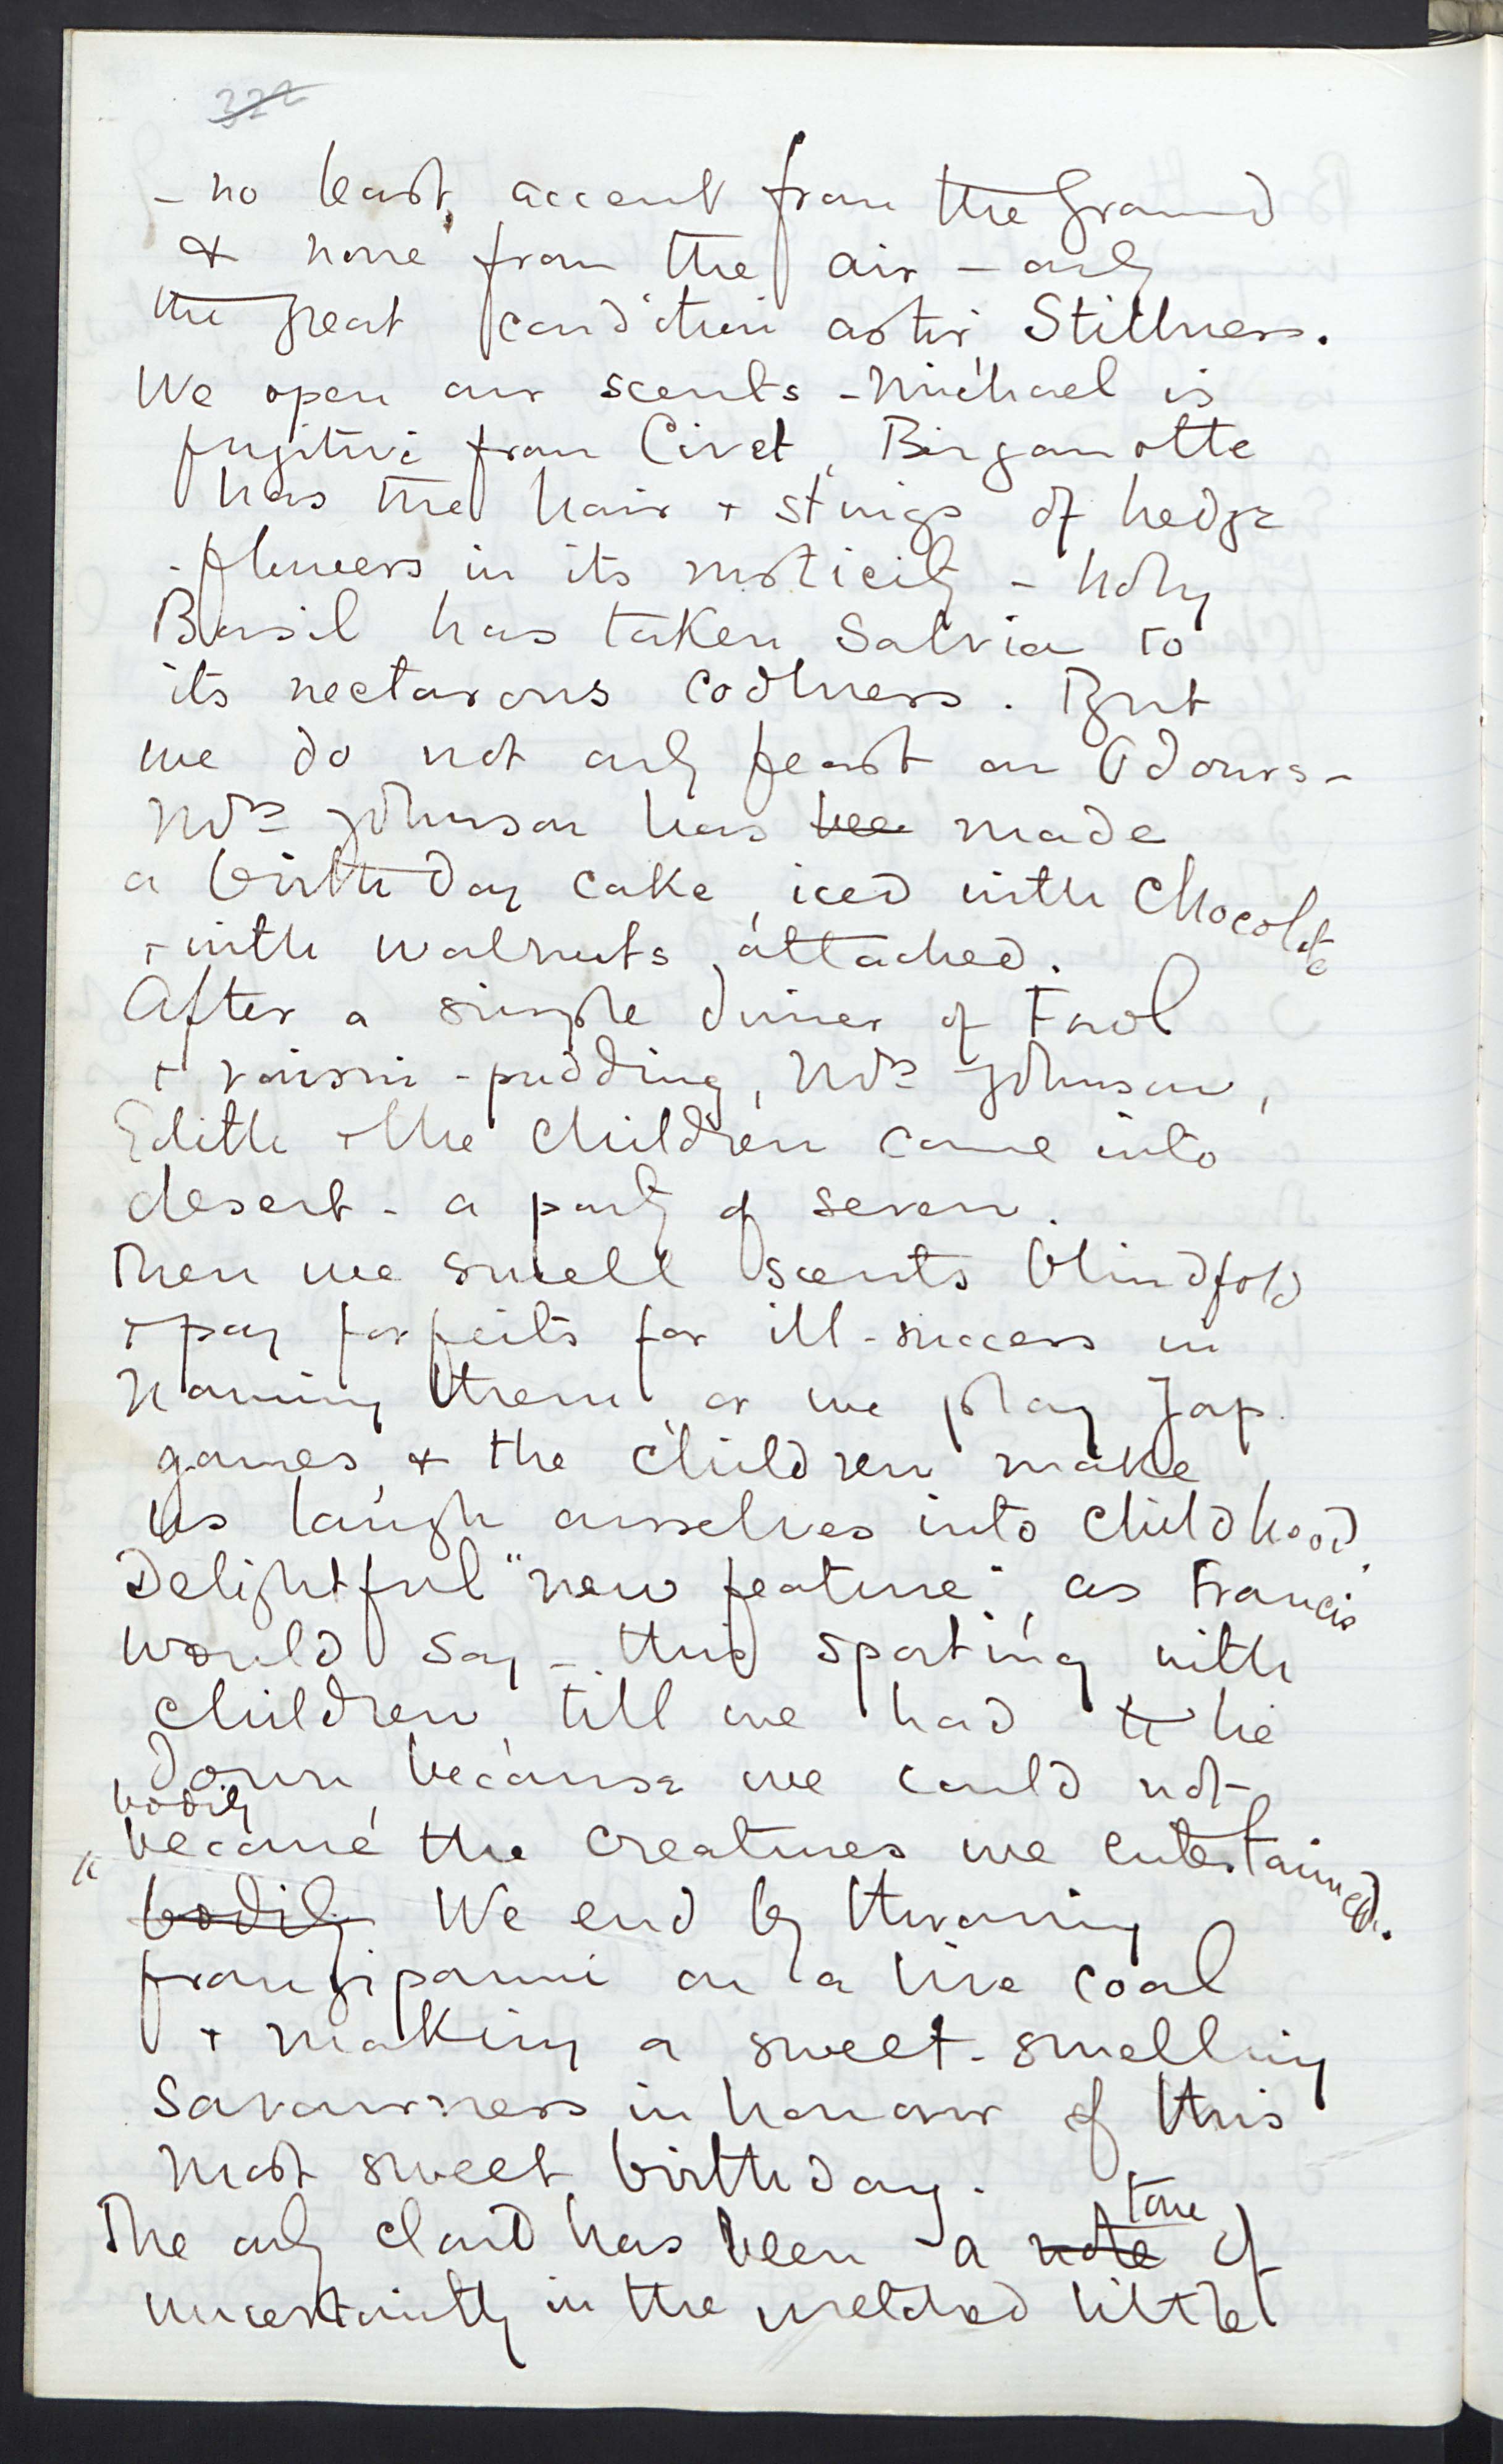 322
- no least, accent from the ground
& none from the air - only
the great condition astir Stillness.
We open our scents - Michael is
fugitive from Civet, Bergamotte
has the hair + stings of hedge
-flowers in its rusticity - Holy
Basil has taken Salvia to
its nectarous coolness. But
we do not only feast on Odours -
Mrs Johnson has bee made
a birthday cake, iced with Chocolate
+ with walnuts attached.
After a simple dinner of Fowl
+ raisin-pudding, Mrs Johnson,
Edith + the children came into
desert - a party of seven.
Then we smell scents blindfold
+ pay forfeits for ill-success in
naming them or we play Jap.
games, & the children make
us laugh ourselves into childhood.
Delightful "new feature", as Francis
would say - this sporting with
children till we had to lie
down because we could not
bodily
"become the creatures we entertained.
bodily We end by throwing
frangipanni on a live coal
+ making a sweet-smelling
savourness in honour of this
most sweet birthday.
tone
The only cloud has been a note of
uncertainty in the wretched little